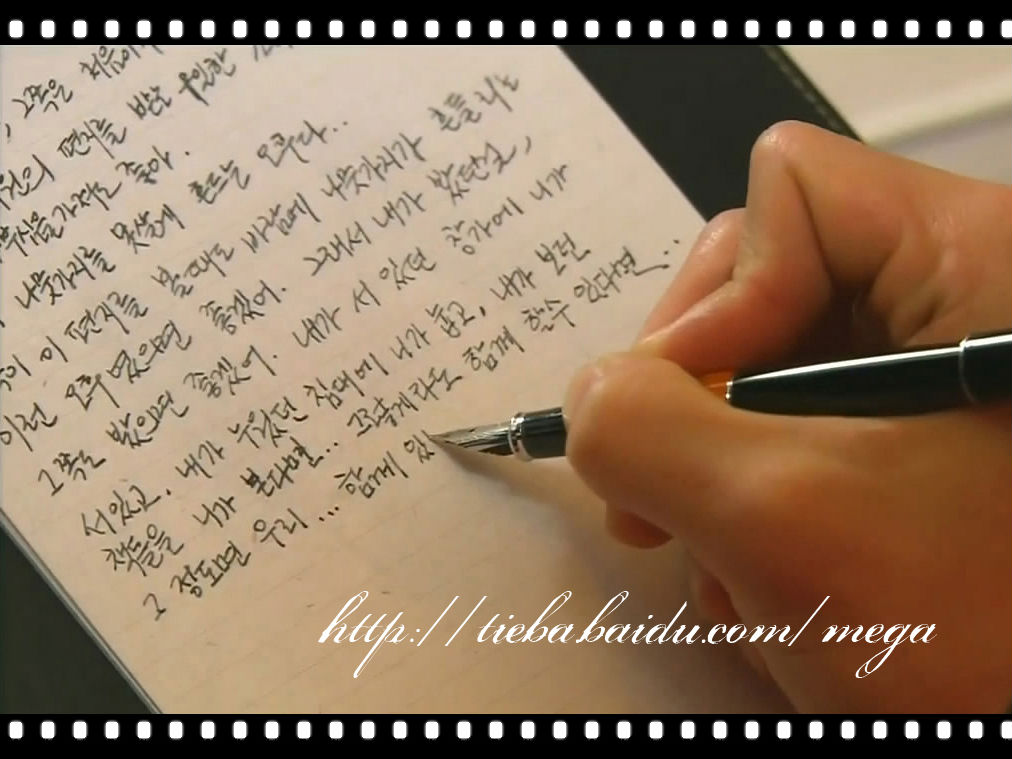 , 그쪽은 처음이
편지를 받는 유일한
좋아.
나뭇가지를 못살게 흔드는 오후다..
이 편지를 볼때도 바람에 나뭇가지가 흔들리는
이런 오후였으면 좋겠어. 그래서 내가 봤던걸,
그쪽도 봤으면 좋겠어. 내가 서 있던 창가에 니가
서있고, 내가 누웠던 침대에 니가 눕고, 내가 보던
책들을 니가 본다면... 그렇게라도 함께 할수 있다면...
그 정도면 우리 ... 함께 있
http://tieba.baidu.com/mega